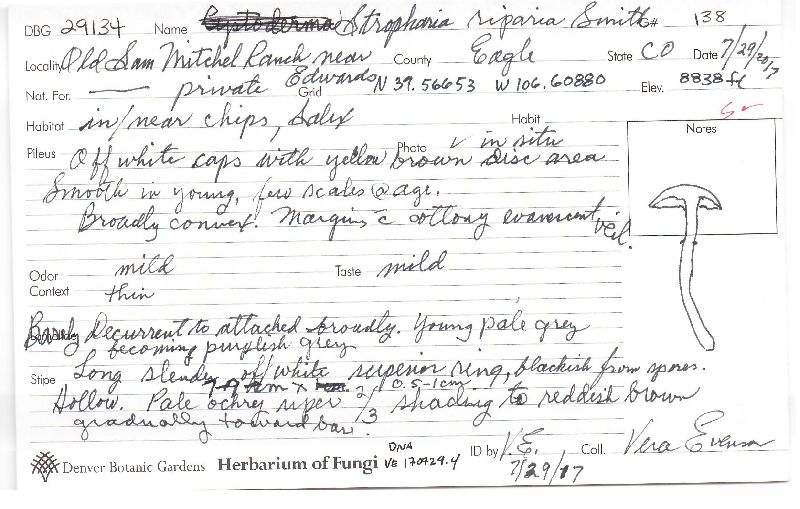 DBG 29134 Name Cystoderma Stropharia riparia Smith G# 138
Locality Old Sam Mitchel Ranch near County Eagle State CO Date 7/29/2017
Nat. For. — private Edwards Grid N 39.56653 W 106.60880 Elev. 8838 ft
Habitat in/near chips, Salix Habit
Notes
Pileus Off white caps with yellow brown disc area Photo ✓ in situ
Smooth in young, few scales @ age.
Broadly convex. Margins c̄ cottony evanescent veil.
Odor mild Taste mild
Context thin
Barely Decurrent to attached broadly. Young pale grey
becoming purplish grey
Stipe Long slender, off white superior ring, blackish from spores.
7-9 cm x 0.5-1cm
Hollow. Pale ochrey super 2/3 shading to reddish brown
gradually toward base
Denver Botanic Gardens Herbarium of Fungi DNA VE 170729.4 ID by V.E. Coll. Vera Evenson
7/29/17